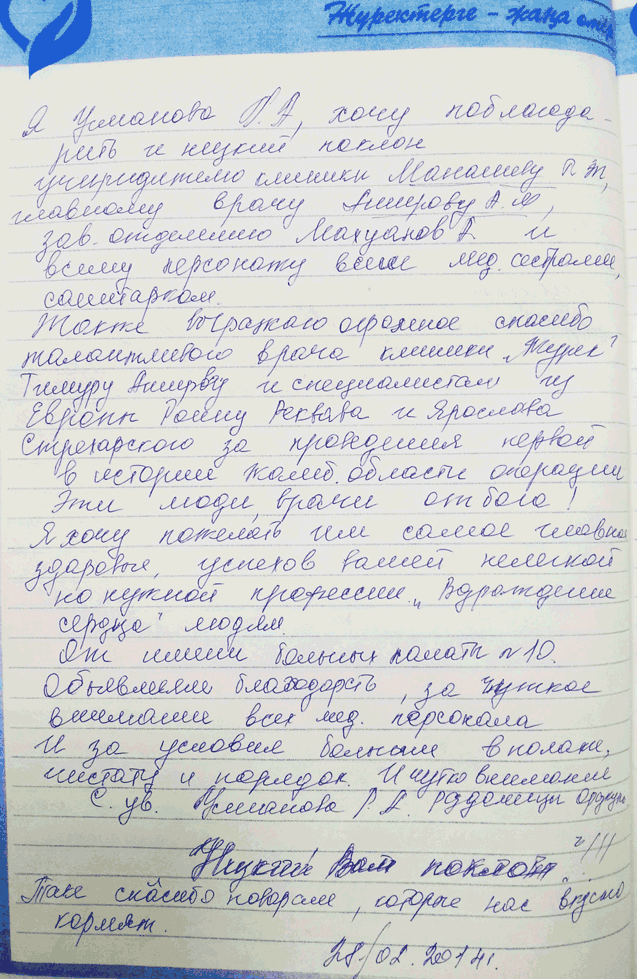 Жүректерге - жаңа өмір
Я Усманова Г. А, хочу поблагода-
рить и ниский паклон
учиридителю клиники Манашеву Р. Ж,
главному врачу Аширову А. М,
зав. отделению Махуанов А и
всему персонажу всем мед. сестрам,
санитаркам.
Также выражаю огромное спасибо
талантливого врача клиники „Журек"
Тимуру Аширову и специалистам из
Европы Роину Реквава и Ярослава
за проведения первой
в истории Жамб. области операции
Эти люди, врачи от бога!
Я хочу пожелать им самое главное
здоровья, успехов вашей нелегкой
но нужной профессии „Вазраждении
сердца" людям.
От имени больных палаты №10.
Объявляем благодарсть, за чуткое
внимание всех мед. персонала
И за условия больным в полате,
чистату и парядок. И чутко внимание
С. ув. Усманова Г. А.
Ниский Вам паклон "!!!
Таке спасибо поварам, которые нас вкусно
кормят.
28/02.2014г.